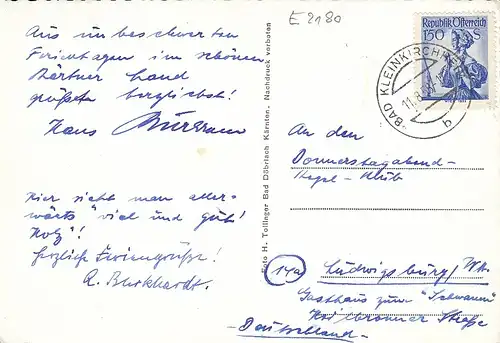 E 2180
Aus unbeschwerten
Ferientagen im schönen
Kärtner Land
grüßen herzlichst!
Hans
Hier sieht man aller-
wärts "viel und gut
Holz"!
Herzliche Feriengrüße!
R. Burkhardt.
Foto H. Tollinger Bad Döbriach Kärnten. Nachdruck verboten
Republik Österreich
150 S
BAD KLEINKIRCHHEIM
b
An den
Donnerstagabend-
Kegel-Klub
14a
Ludwigsburg/Wtt.
Gasthaus zum "Schwanen"
Heilbronner Straße
-Deutschland-